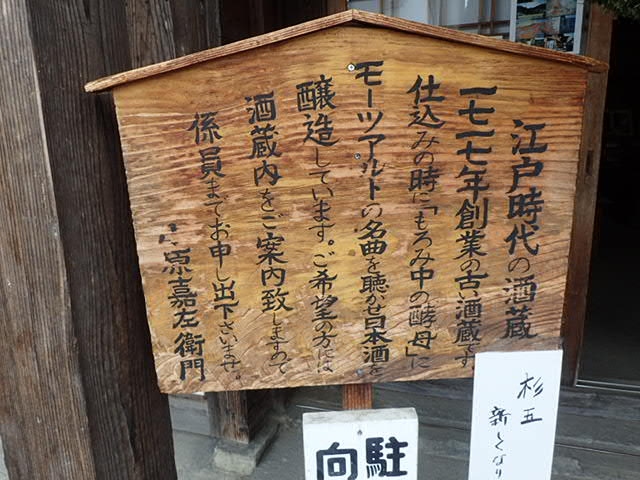 江戸時代の酒蔵
一七一七年創業の古い酒蔵です
仕込みの時に「もろみ中の酵母」に
モーツアルトの名曲を聴かせ日本酒を
醸造しています。ご希望の方には
酒蔵内をご案内致しますので
係員までお申し出下さいませ。
原嘉左衛門
杉玉
新しくなり
駐
向